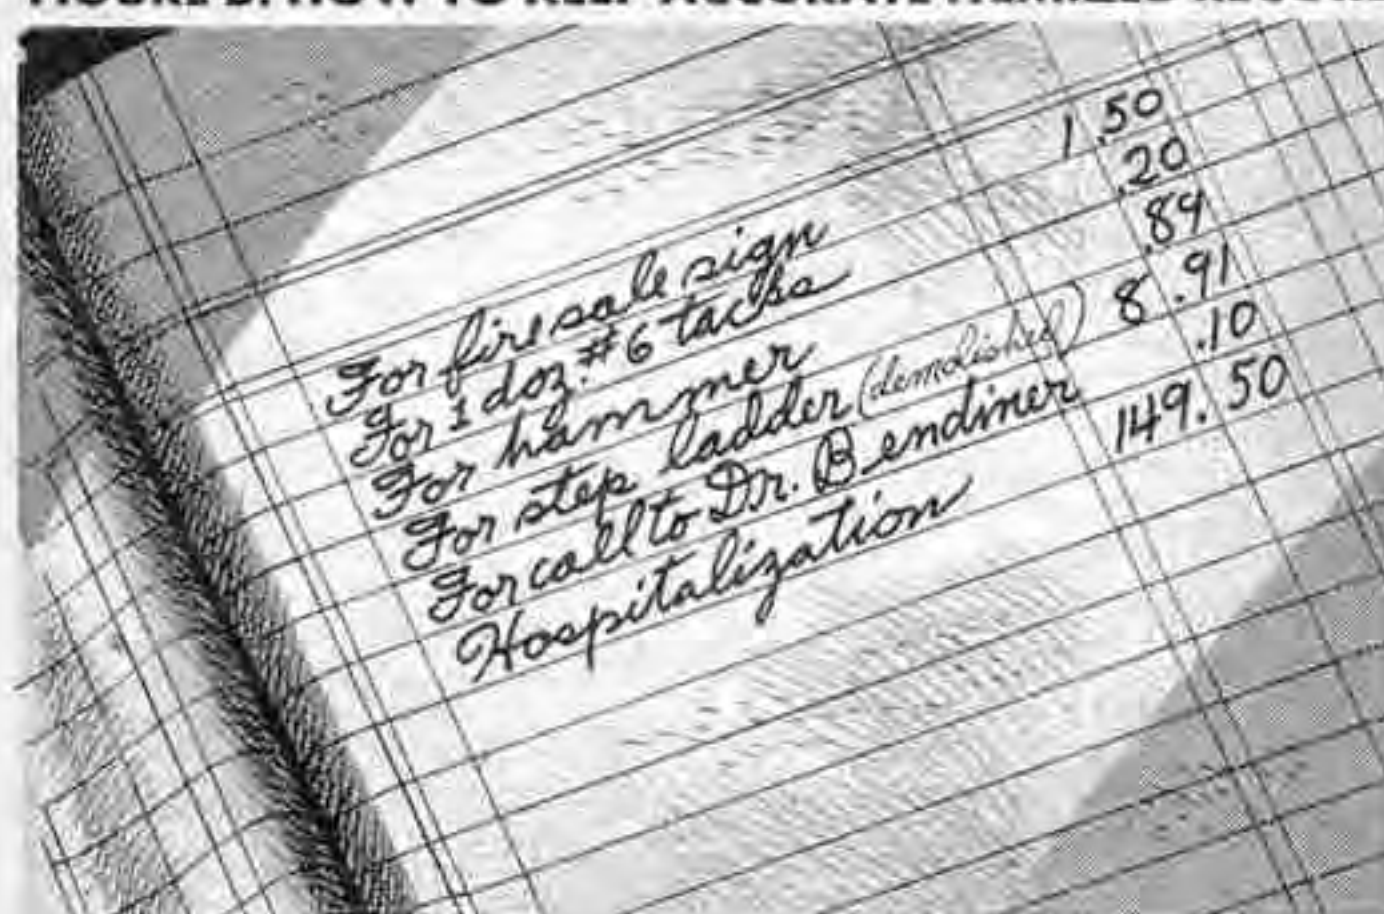 HOW TO KEEP ACCURATE ITEMIZED
For fire sale sign 1.50
For 1 doz. #6 tacks .20
For hammer .89
For step ladder (demolished) 8.91
For call to Dr. Bendiner .10
Hospitalization 149.50